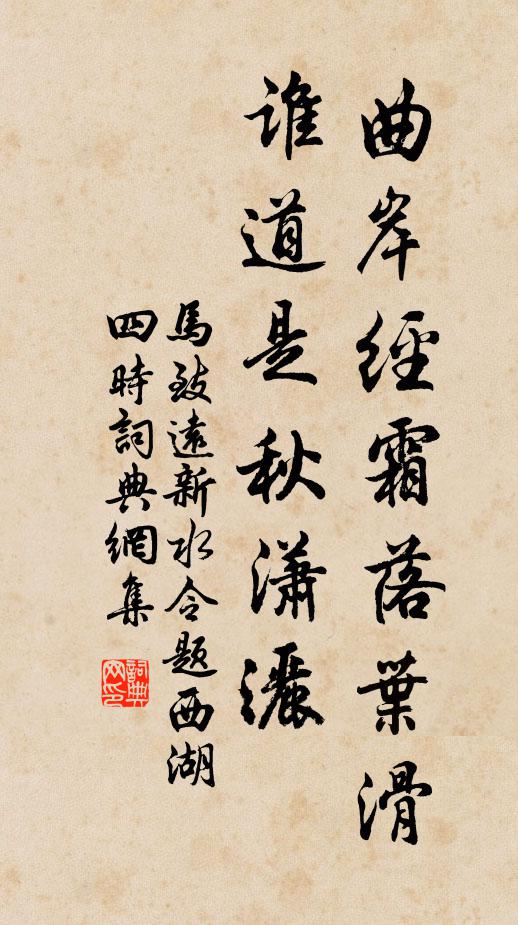 曲岸經霜落葉滑
誰道是秋瀟灑
馬致遠新水令題西湖
四時詞典網集
詞典
网印